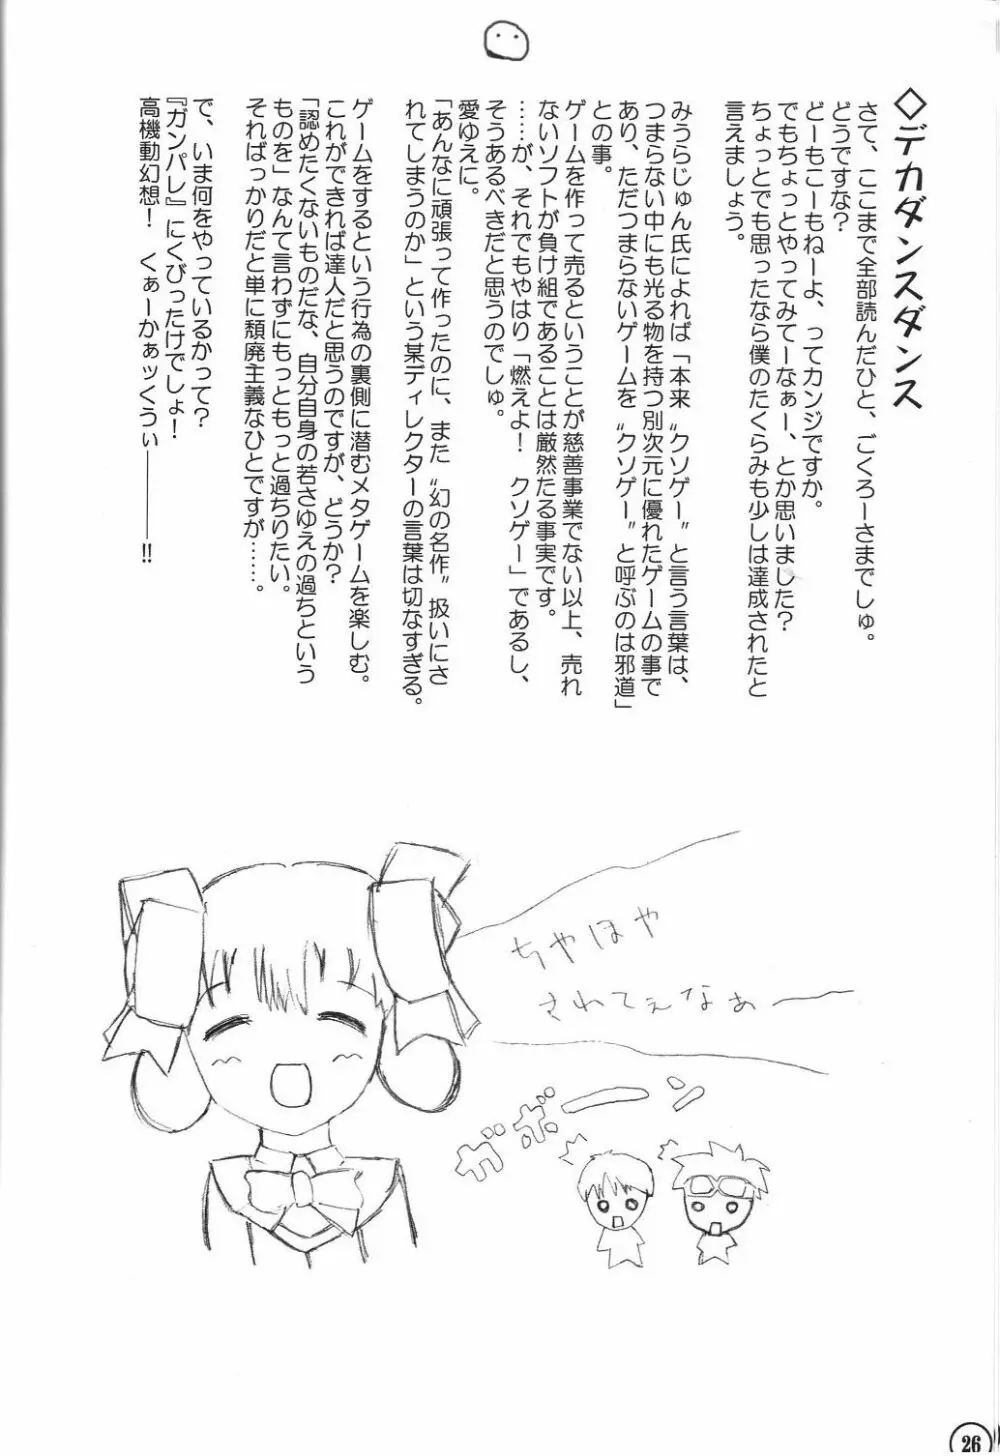 ◇デカダンスダンス
さて、ここまで全部読んだひと、ごくろーさまでしゅ。
どうですな?
どーもこーもねーよ、ってカンジですか。
でもちょっとやってみてーなぁー、とか思いました?
ちょっとでも思ったなら僕のたくらみも少しは達成されたと
言えましょう。
みうらじゅん氏によれば「本来〝クソゲー〟と言う言葉は、
つまらない中にも光る物を持つ別次元に優れたゲームの事で
あり、ただつまらないゲームを〝クソゲー〟と呼ぶのは邪道」
との事。
ゲームを作って売るということが慈善事業でない以上、売れ
ないソフトが負け組であることは厳然たる事実です。
……が、それでもやはり「燃えよ! クソゲー」であるし、
そうあるべきだと思うのでしゅ。
愛ゆえに。
「あんなに頑張って作ったのに、また〝幻の名作〟扱いにさ
れてしまうのか」という某ディレクターの言葉は切なすぎる。
ゲームをするという行為の裏側に潜むメタゲームを楽しむ。
これができれば達人だと思うのですが、どうか?
「認めたくないものだな、自分自身の若さゆえの過ちという
ものを」なんて言わずにもっともっと過ちりたい。
そればっかりだと単に頽廃主義なひとですが……。
で、いま何をやっているかって?
『ガンパレ』にくびったけでしょ!
高機動幻想! くぁーかぁッくうぃ―――!!
ちやほや
されてぇなぁー
ガボーン
26